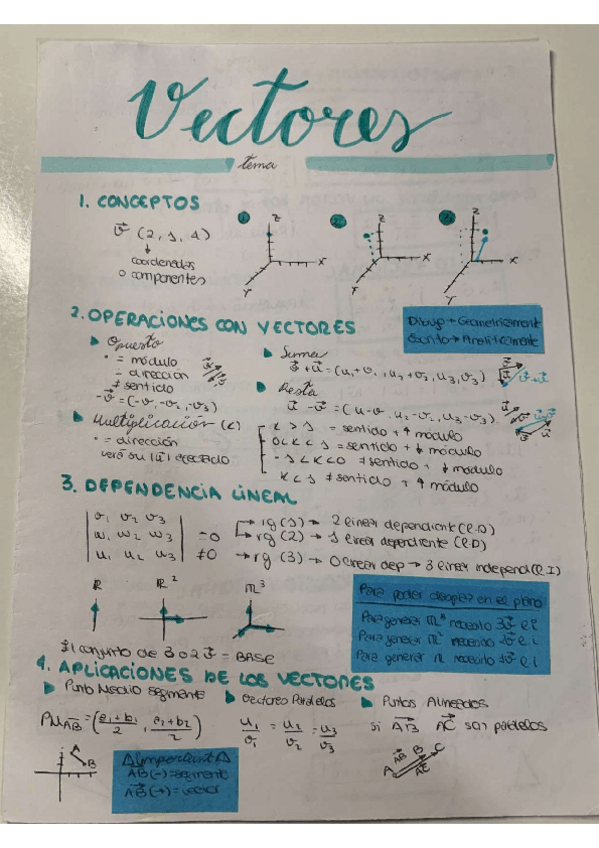 Vectores
tema
1. CONCEPTOS
v⃗ (2, 1, 4)
coordenadas
o componentes
1 Z X Y
2 Z X Y
3 Z X Y
Dibujo → Geometricamente
Escrito → Analíticamente
2. OPERACIONES CON VECTORES
Opuesto
• = módulo
= dirección
≠ sentido
-v⃗ = (-v₁, -v₂, -v₃)
Suma
v⃗ + u⃗ = (u₁+v₁, u₂+v₂, u₃, v₃)
Resta
u⃗ - v⃗ = (u-v, u₂-v₂, u₃-v₃)
Multiplicación (K)
• = dirección
K > 1 = sentido + ↑ módulo
0 < K < 1 = sentido + ↓ módulo
-1 < K < 0 ≠ sentido + ↓ módulo
K < 1 ≠ sentido + ↑ módulo
3. DEPENDENCIA LINEAL
v₁ v₂ v₃
w₁ w₂ w₃
u₁ u₂ u₃
=0
≠0
rg (1) → 2 linear dependient (l.D)
rg (2) → 1 linear dependiente (l.D)
→ rg (3) → 0 linear dep → 3 linear independ (l.I)
R R² R³
Para poder desplaz en el plano
Para generar R³ necesito 3v⃗ l.i
Para generar R² necesito 2v⃗ l.i
Para generar R necesito 1v⃗ l.i
conjunto de 3 o 2 v⃗ = BASE
4. APLICACIONES DE LOS VECTORES
Punto Medio segmento
PM AB = (a₁+b₁/2, a₂+b₂/2)
Vectores Paralelos
u₁/v₁ = u₂/v₂ = u₃/v₃
Puntos Alineados
si AB⃗ AC⃗ son paralelos
A B
AB⃗ B C
A AC⃗
¡Important!
AB (-) = segmento
AB⃗ (→) = vector